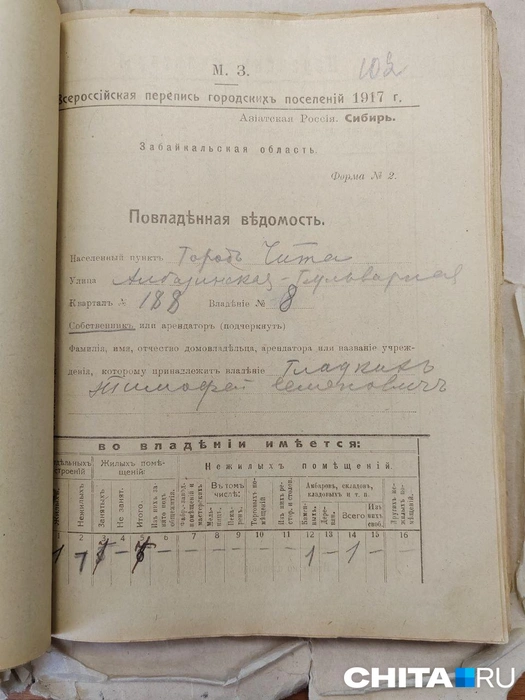 М. З.
102
Всероссійская перепись городскихъ поселеній 1917 г.
Азіатская Россія. Сибирь.
Забайкальская область.
Форма № 2.
Повладѣнная вѣдомость.
Населенный пунктъ Городъ Чита
Улица Албазинская-Бульварная
Кварталъ № 188 Владѣніе № 8
Собственникъ или арендаторъ (подчеркнуть)
Фамилія, имя, отчество домовладѣльца, арендатора или названіе учреж-
денія, которому принадлежитъ владѣніе Гладкихъ
Тимофей Семеновичъ
во владѣніи имѣется:
Жилыхъ помѣ-
щеній:
Нежилыхъ помѣщеній.
Нежилыхъ.
Занятыхъ.
Не занят.
Итого.
Въ томъ
числѣ:
Амбаров, складов,
кладовых и т. п.
Всего
2 3 4 5 6 7 8 9 10 11 12 13 14 15 16
1 7 – – 1 – 1 –
CHITA.RU